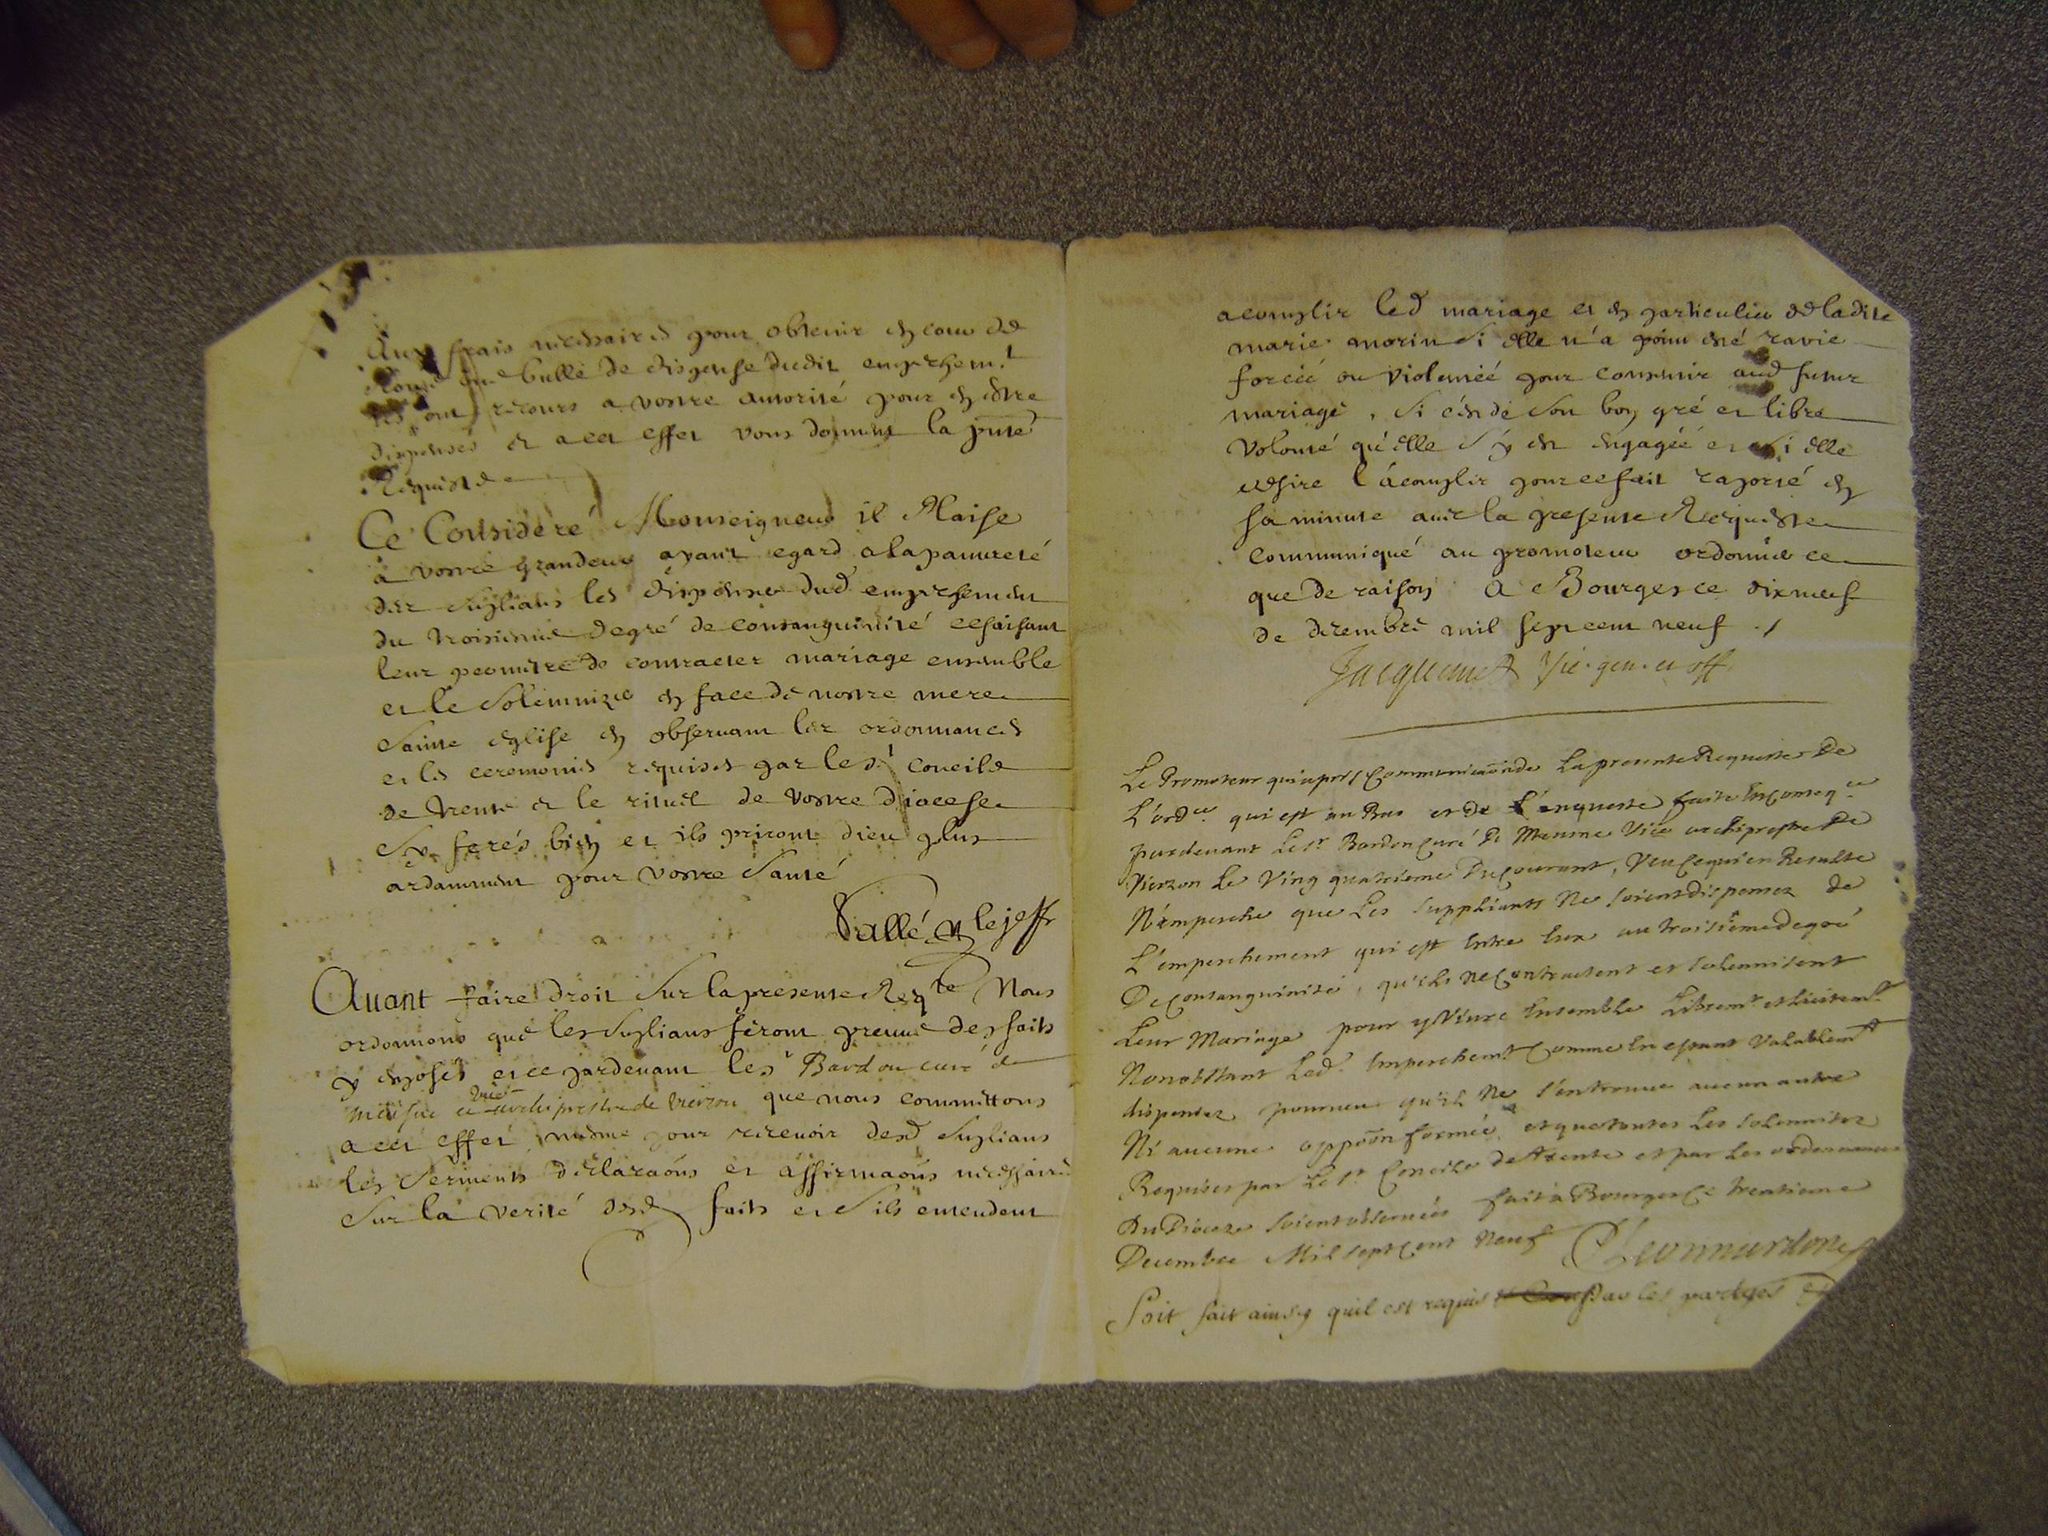 Aux frais necessaires pour obtenir en cour de
Rome une bulle de dispense dudit empeschemt
ils ont recours a vostre autorité pour en estre
dispensés et a cet effet vous donnent la pnte
Requiste
Ce Consideré Monseigneur il Plaise
a vostre grandeur ayant egard a la pauvreté
des suplians les dispenser dud empeschement
du troisieme degré de consanguinité ce faisant
leur permetre de contracter mariage ensemble
et le solemnizer en face de nostre mere
sainte eglise en observant les ordonnances
et les ceremonies requises par le st concile
de trente et le rituel de vostre diocese
sy ferés bien et ils priront dieu plus
ardamment pour vostre santé
Vallé le jeff
Avant faire droit sur la presente Reqte Nous
ordonnons que les suplians feront preuve des faits
y exposés et ce pardevant le sr Bardon curé de
vice
archiprestre de vierzon que nous committons
a cet effet mesme pour recevoir desd suplians
les serments declaraõns et affirmaõns necessaires
sur la verité desd faits et sils entendent
acomplir led mariage et en particulier de ladite
marie morin si elle n'a point esté ravie
forcéé ou violentéé pour consentir aud futur
mariage, si c'est de son bon gré et libre
volonté qu'elle s'y est engagéé et si elle
desire l'acomplir pour ce fait raporté en
sa minute avec la presente Requeste
communiqué au promoteur ordonner ce
que de raison A Bourges ce dixneuf
de decembre mil sept cent neuf ./
Jacquemet vic. gen. et off.
Le Promoteur qui a pris Communicaõn de La presente Requeste De
L'ordce qui est au Bas et de L'enqueste faite En conseqce
pardevant Le sr Bardon Curé De Vice archiprestre De
Vierzon Le Ving quatrieme Du Courant, Veu Ce qui en Resulte
N'empesche que Les supphiants Ne soient dispensez de
L'empeschement qui est Entre Eux au troisiême degré
De Consanguinité, qu'ils ne Contractent et solennisent
Leur Mariage pour y Vivre Ensemble Libremt et licitemt
Nonobstant Led. Empeschemt Comme En estant Valablemt
dispensez pourveu qu'il Ne s'en trouve aucun autre
Ni aucune oppoõn formée, et que toutes Les solennitez
Requises par Le st Concile de trente et par Les ordonnances
Du Diocese soient observées fait a Bourges Ce trentieme
Decembre Mil sept Cent Neuf
Soit fait ainsy quil est requis Par les partyes